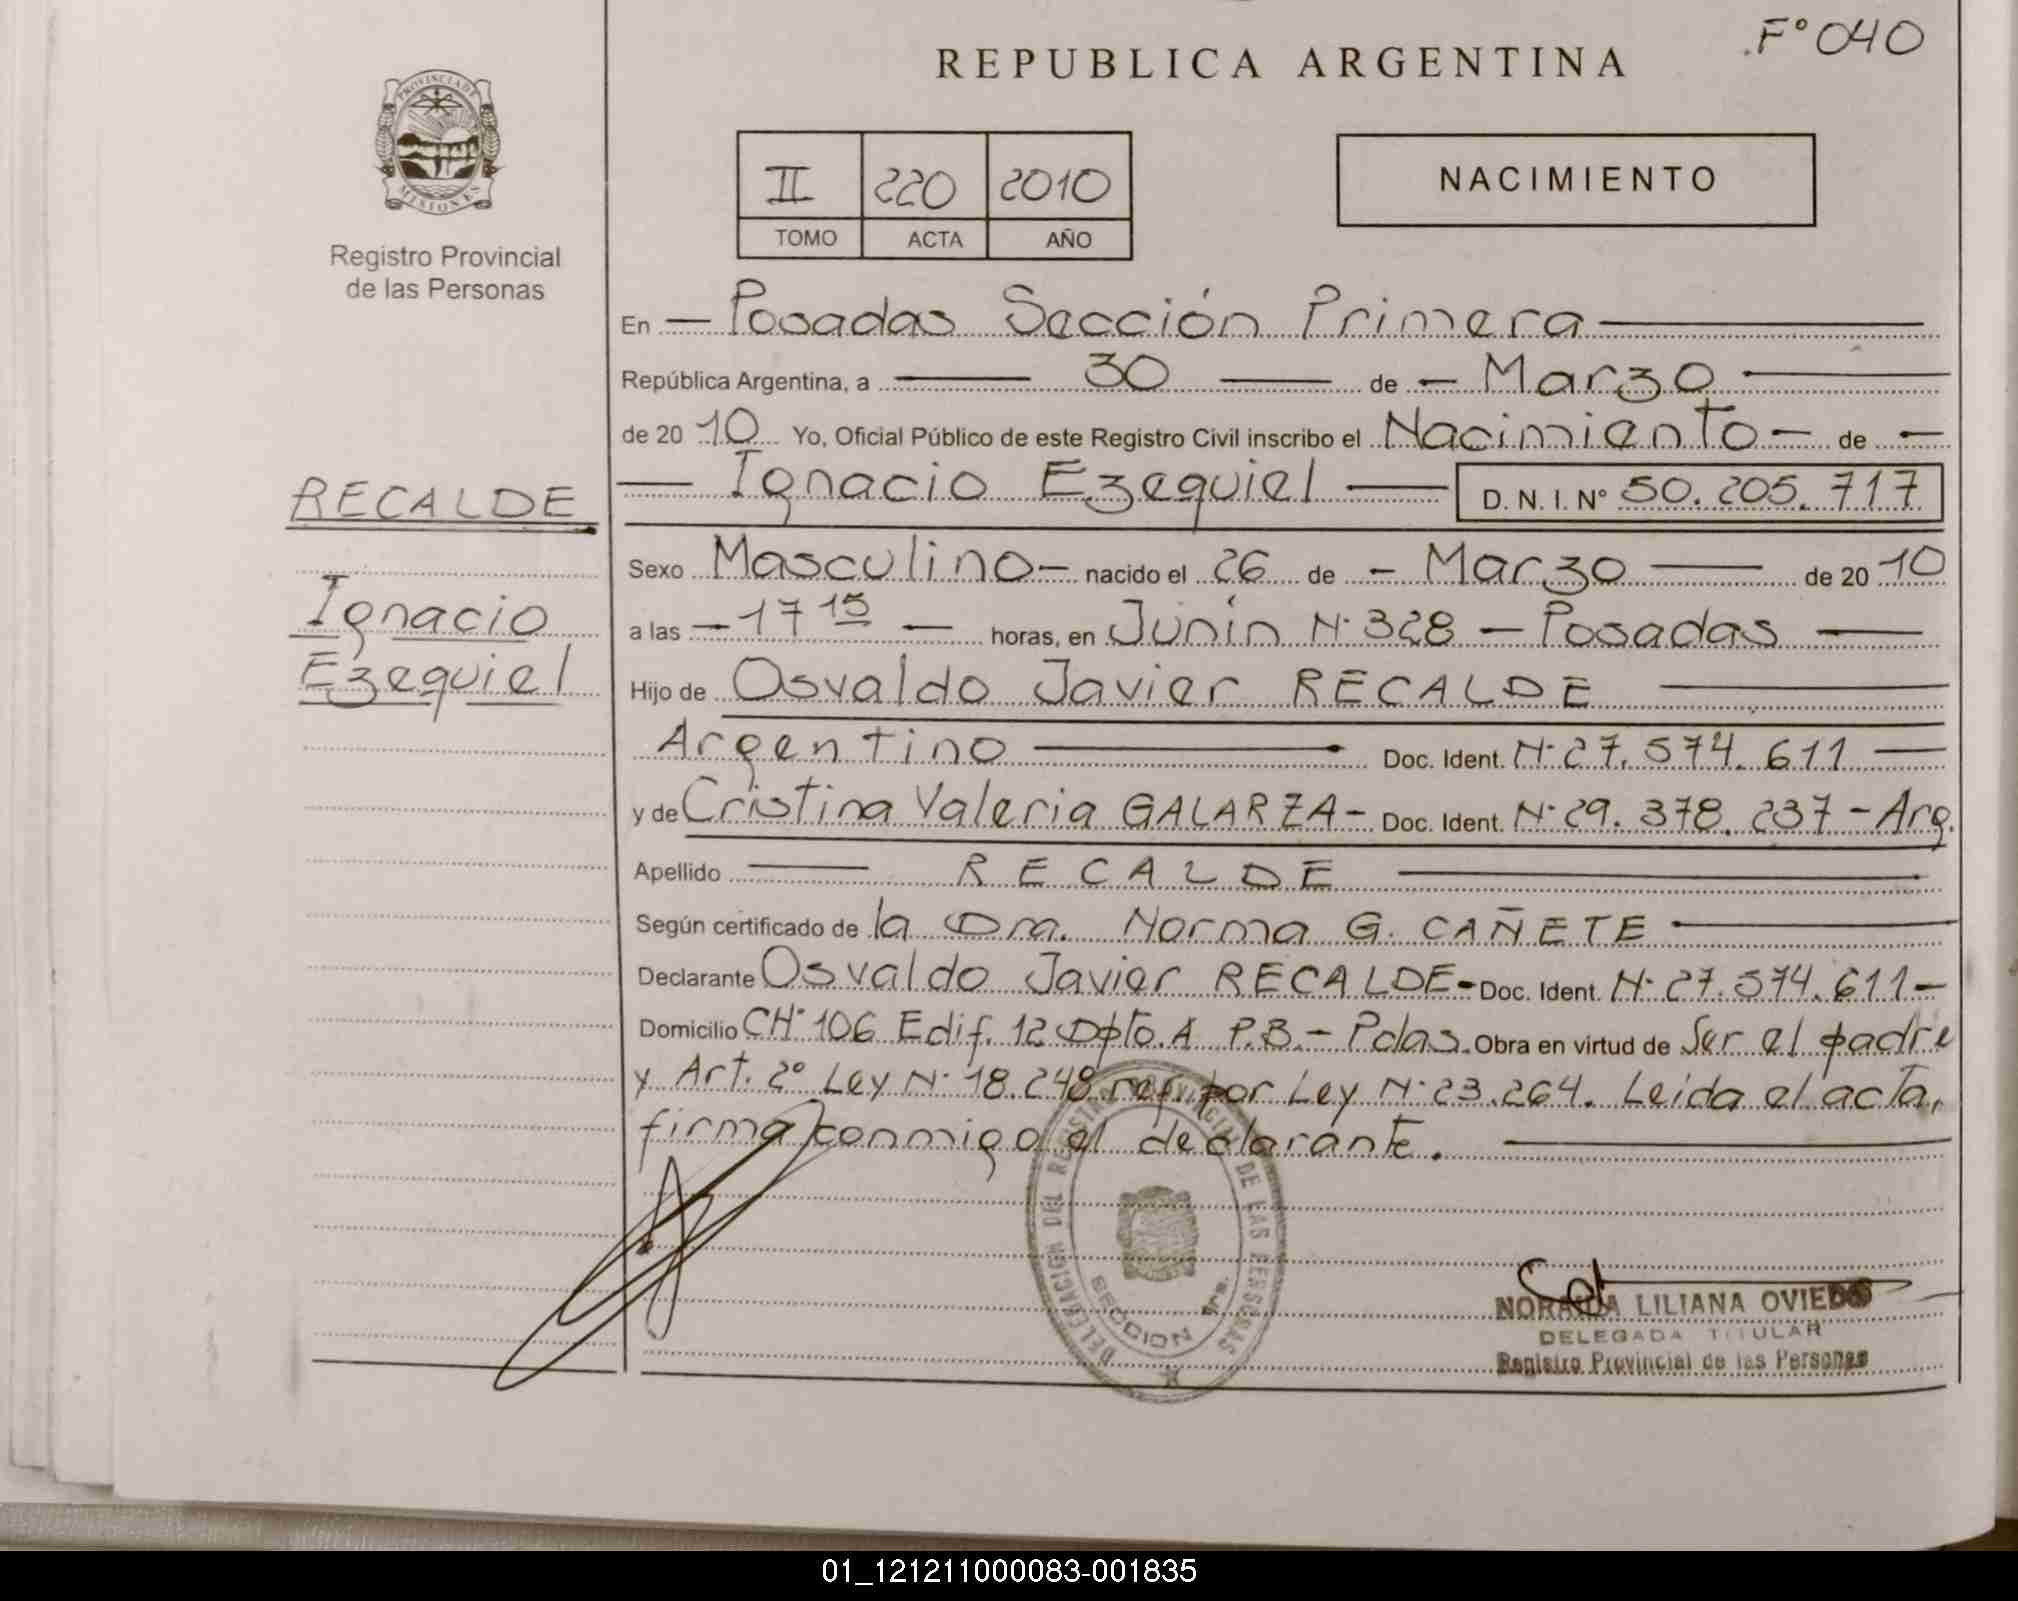 F° 040
REPUBLICA ARGENTINA
PROVINCIA DE
MISIONES
Registro Provincial
de las Personas
II 220 2010
TOMO ACTA AÑO
NACIMIENTO
En — Posadas Sección Primera —
República Argentina, a — 30 — de — Marzo —
de 20 10 Yo, Oficial Público de este Registro Civil inscribo el Nacimiento — de —
— Ignacio Ezequiel — D. N. I. N° 50.205.717
RECALDE
Ignacio
Ezequiel
Sexo Masculino — nacido el 26 de — Marzo — de 20 10
a las — 17 15 — horas, en Junín N· 328 — Posadas —
Hijo de Osvaldo Javier RECALDE —
Argentino — Doc. Ident. N· 27.574.611 —
y de Cristina Valeria GALARZA — Doc. Ident. N· 29.378.237 — Arg.
Apellido — RECALDE —
Según certificado de la Dra. Norma G. CAÑETE —
Declarante Osvaldo Javier RECALDE — Doc. Ident. N· 27.574.611 —
Domicilio CH· 106 Edif. 12 Dpto. A P.B. — Pdas. Obra en virtud de Ser el padre
y Art. 2° Ley N· 18.248 ref. por Ley N· 23.264. Leida el acta,
firma conmigo el declarante. —
DELEGACION DEL REGISTRO PROVINCIAL DE LAS PERSONAS
SECCION 1ra.
NORAIDA LILIANA OVIEDO
DELEGADA TITULAR
Registro Provincial de las Personas
01_121211000083-001835